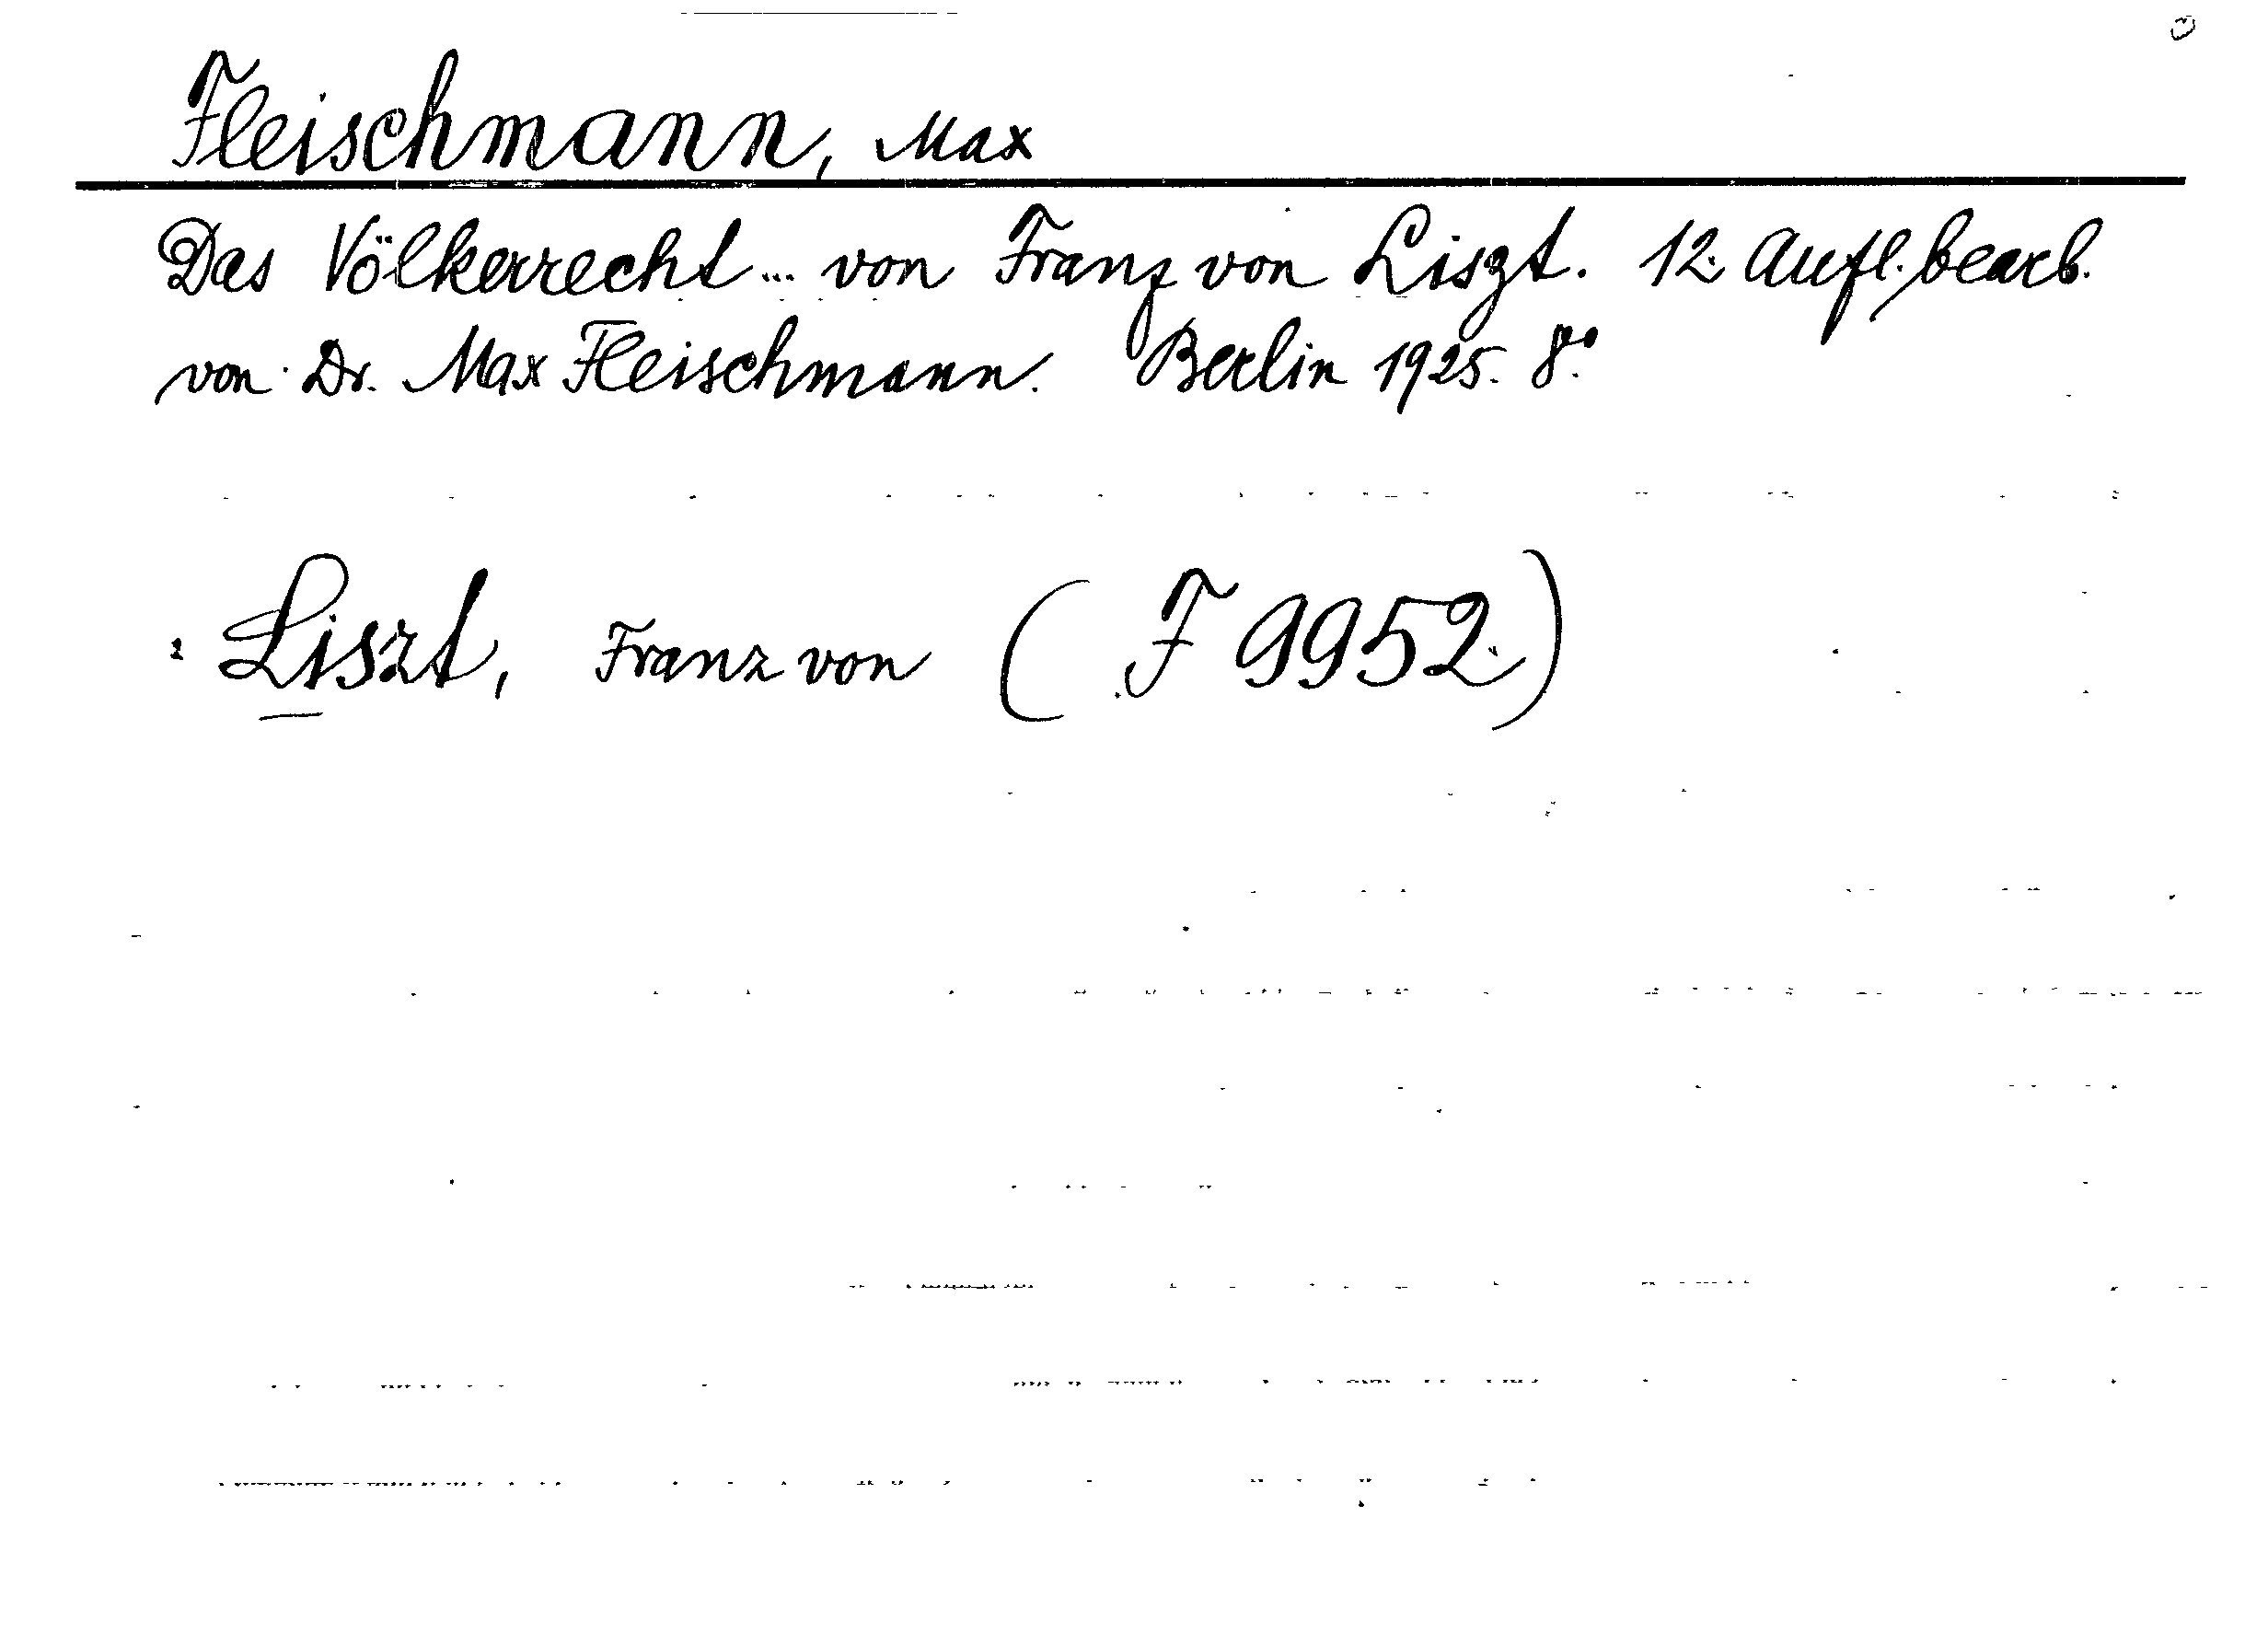 Fleischmann, Max
Das Völkerrecht ... von Franz von Liszt. 12. Aufl. bearb.
von Dr. Max Fleischmann. Berlin 1925. 8°.
Liszt, Franz von (F 9952.)